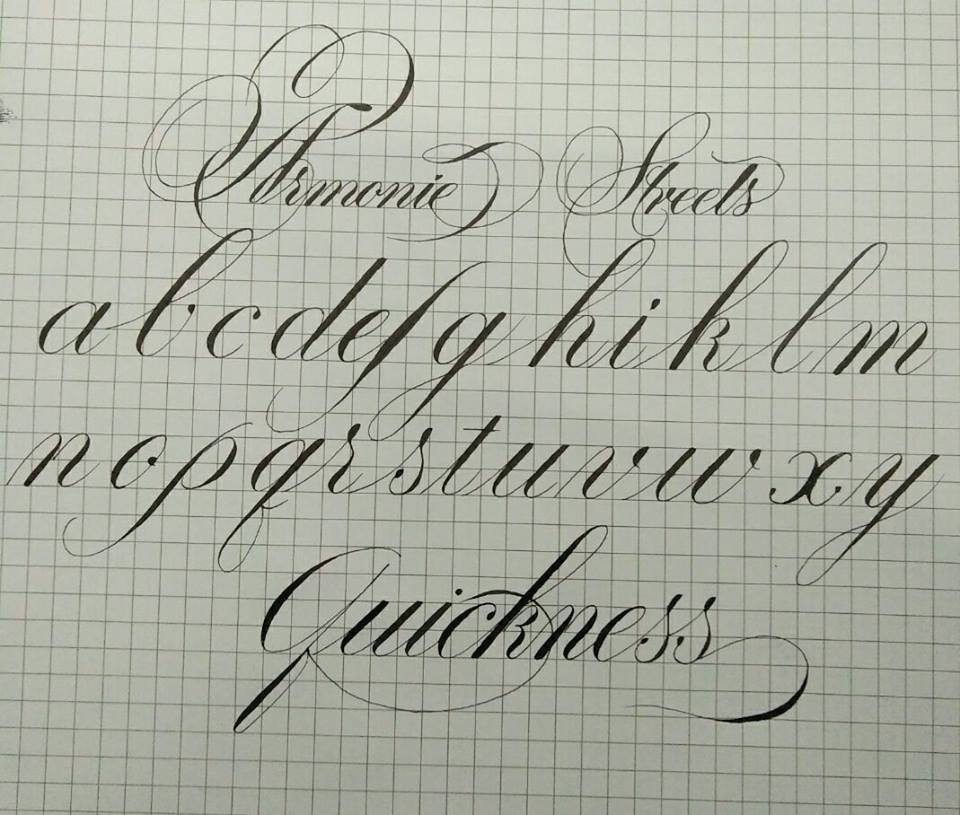 Armonie Streets
a b c d e f g h i k l m
n o p q r s t u v w x y
Quickness